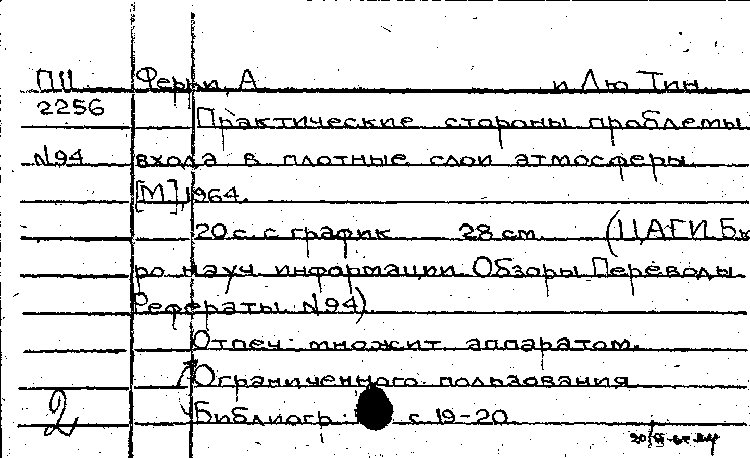 ПII Ферри, А и Лю Тин.
2256 Практические стороны проблемы
N94 входа в плотные слои атмосферы
[М], 1964.
20 с. с график 28 см. (ЦАГИ. Бю
ро науч. информации. Обзоры. Переводы.
Рефераты. N94).
Отпеч. множит. аппаратом.
Ограниченного пользования
Библиогр.: с. 19-20
2